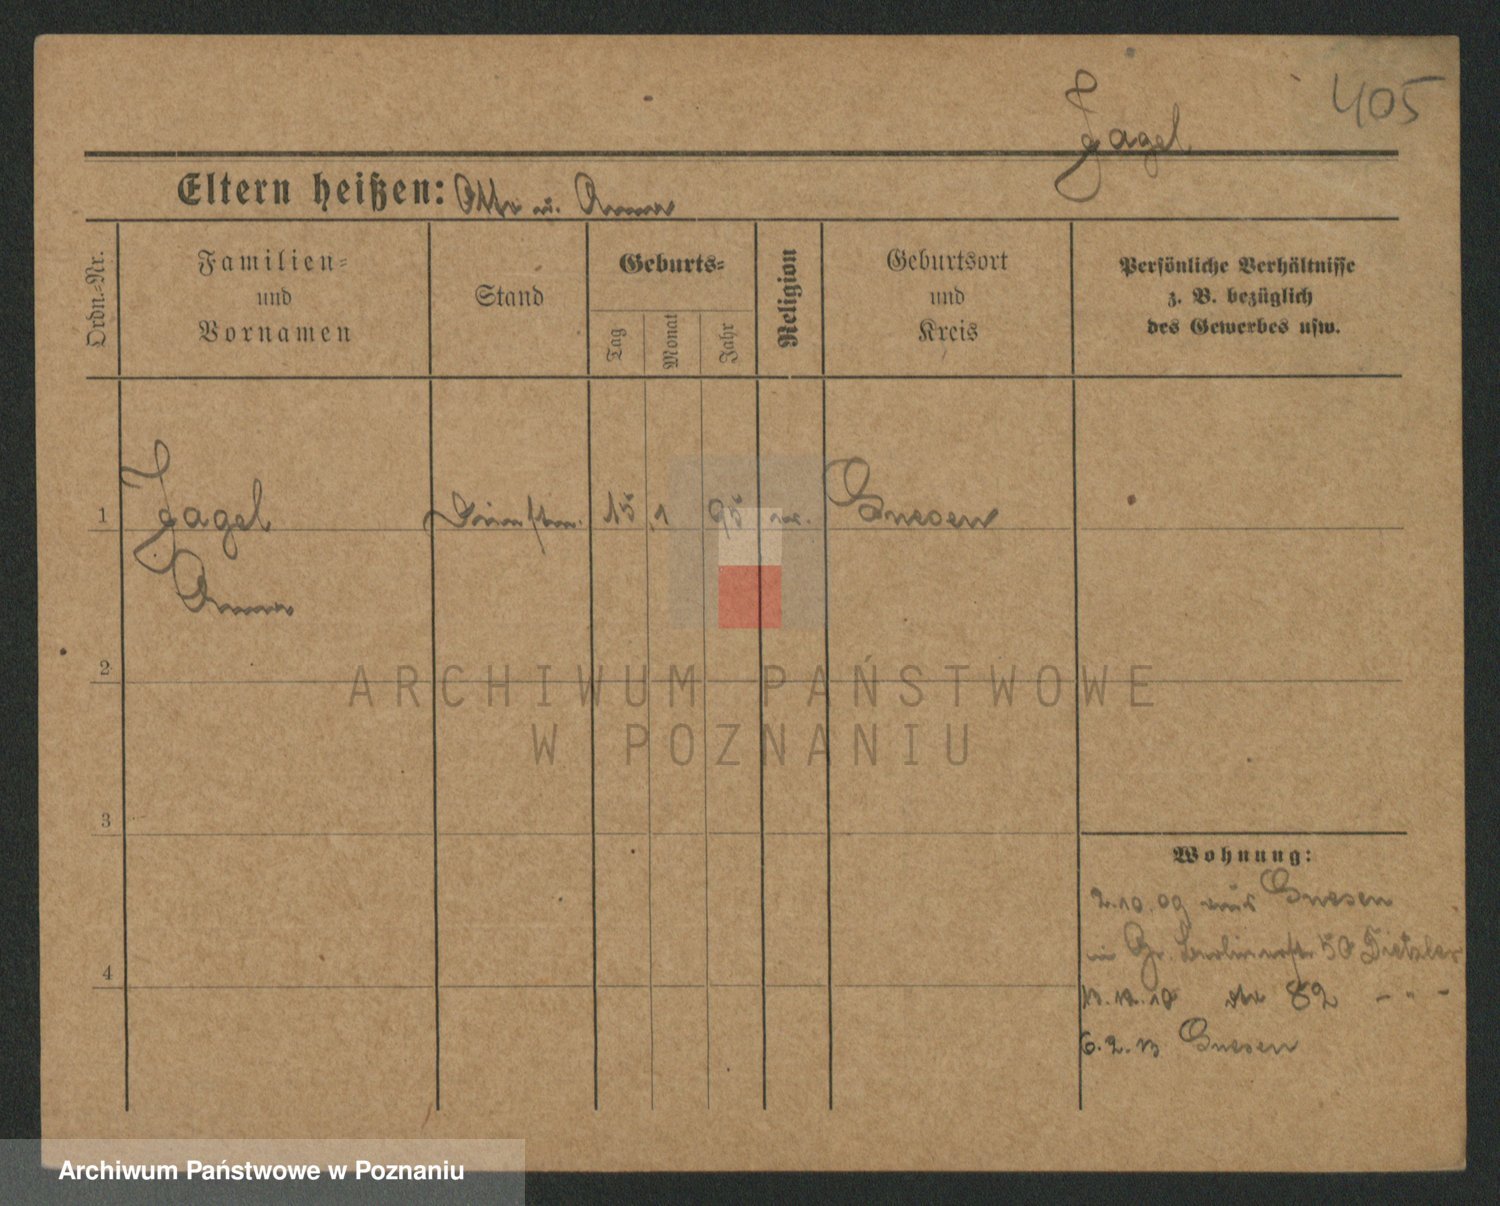 405
Jagel
Eltern heißen: Otto u. Anna
Ordn.-Nr.
Familien- und Vornamen
Stand
Geburts-
Tag
Monat
Jahr
Religion
Geburtsort und Kreis
Persönliche Verhältnisse
z. B. bezüglich
des Gewerbes usw.
1 Jagel 15 1 95 Gnesen
Anna
2
ARCHIWUM PAŃSTWOWE
W POZNANIU
3
Wohnung:
2.10.09 aus Gnesen
in Gr. Berlinerstr 50 Dietzler
4
82 - " -
6.2. Gnesen
Archiwum Państwowe w Poznaniu